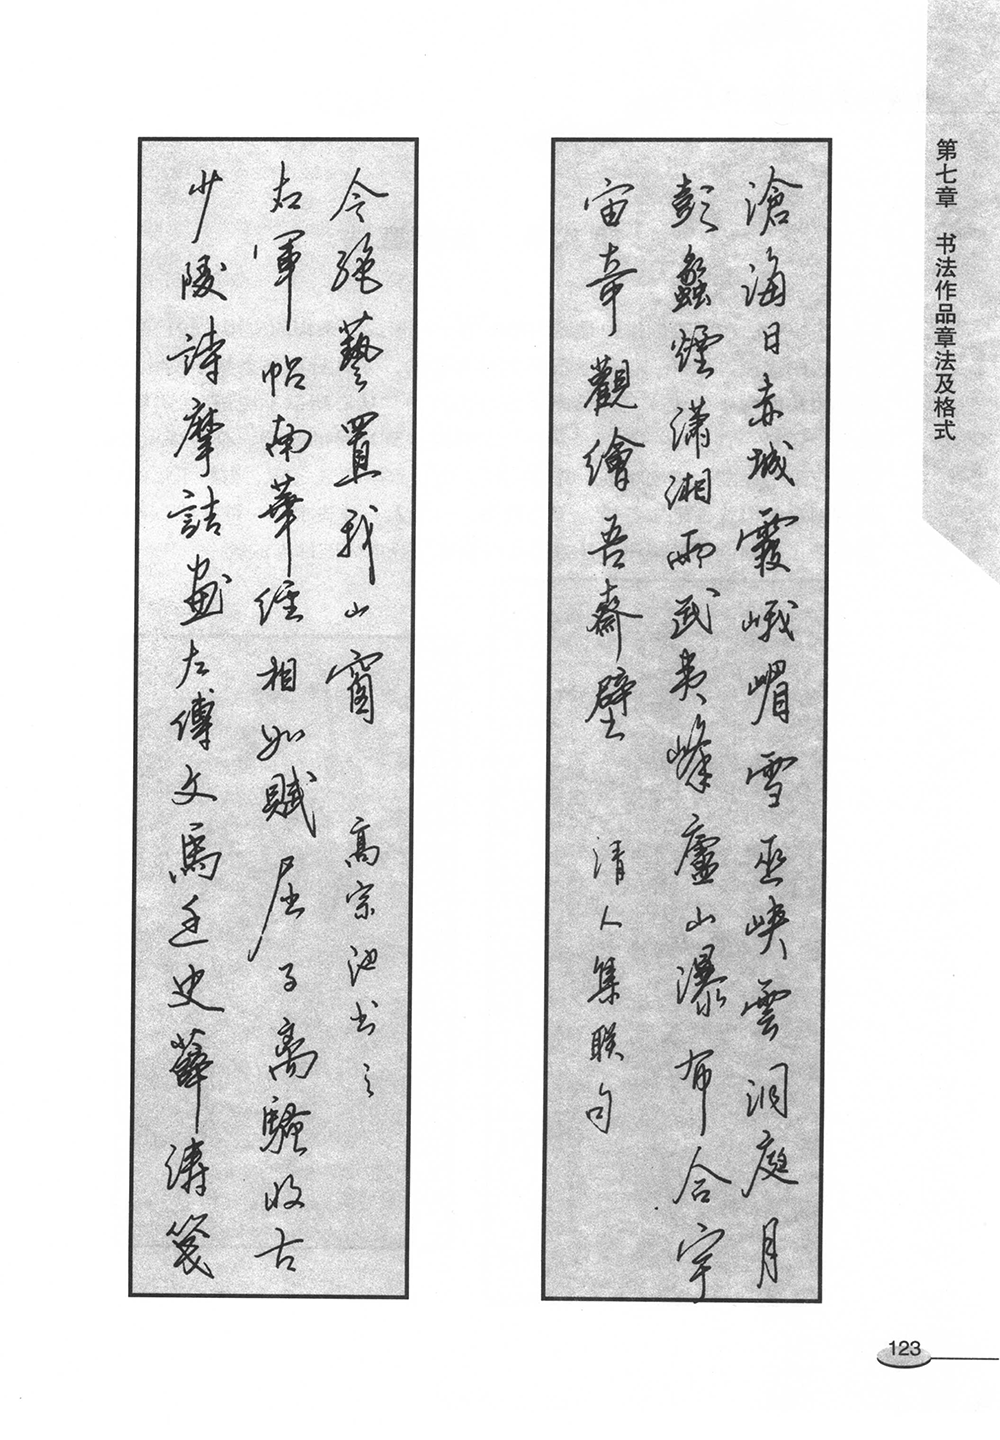 第七章 书法作品章法及格式
滄海日赤城霞峨嵋雪巫峽雲洞庭月
彭蠡煙瀟湘雨武夷峰廬山瀑布合宇
宙奇觀繪吾齋壁 清人集联句
少陵詩摩詰畫左傳文馬遷史薛濤箋
右軍帖南華經相如賦屈子离騷收古
今絕藝置我山窗 高宗池书之
123